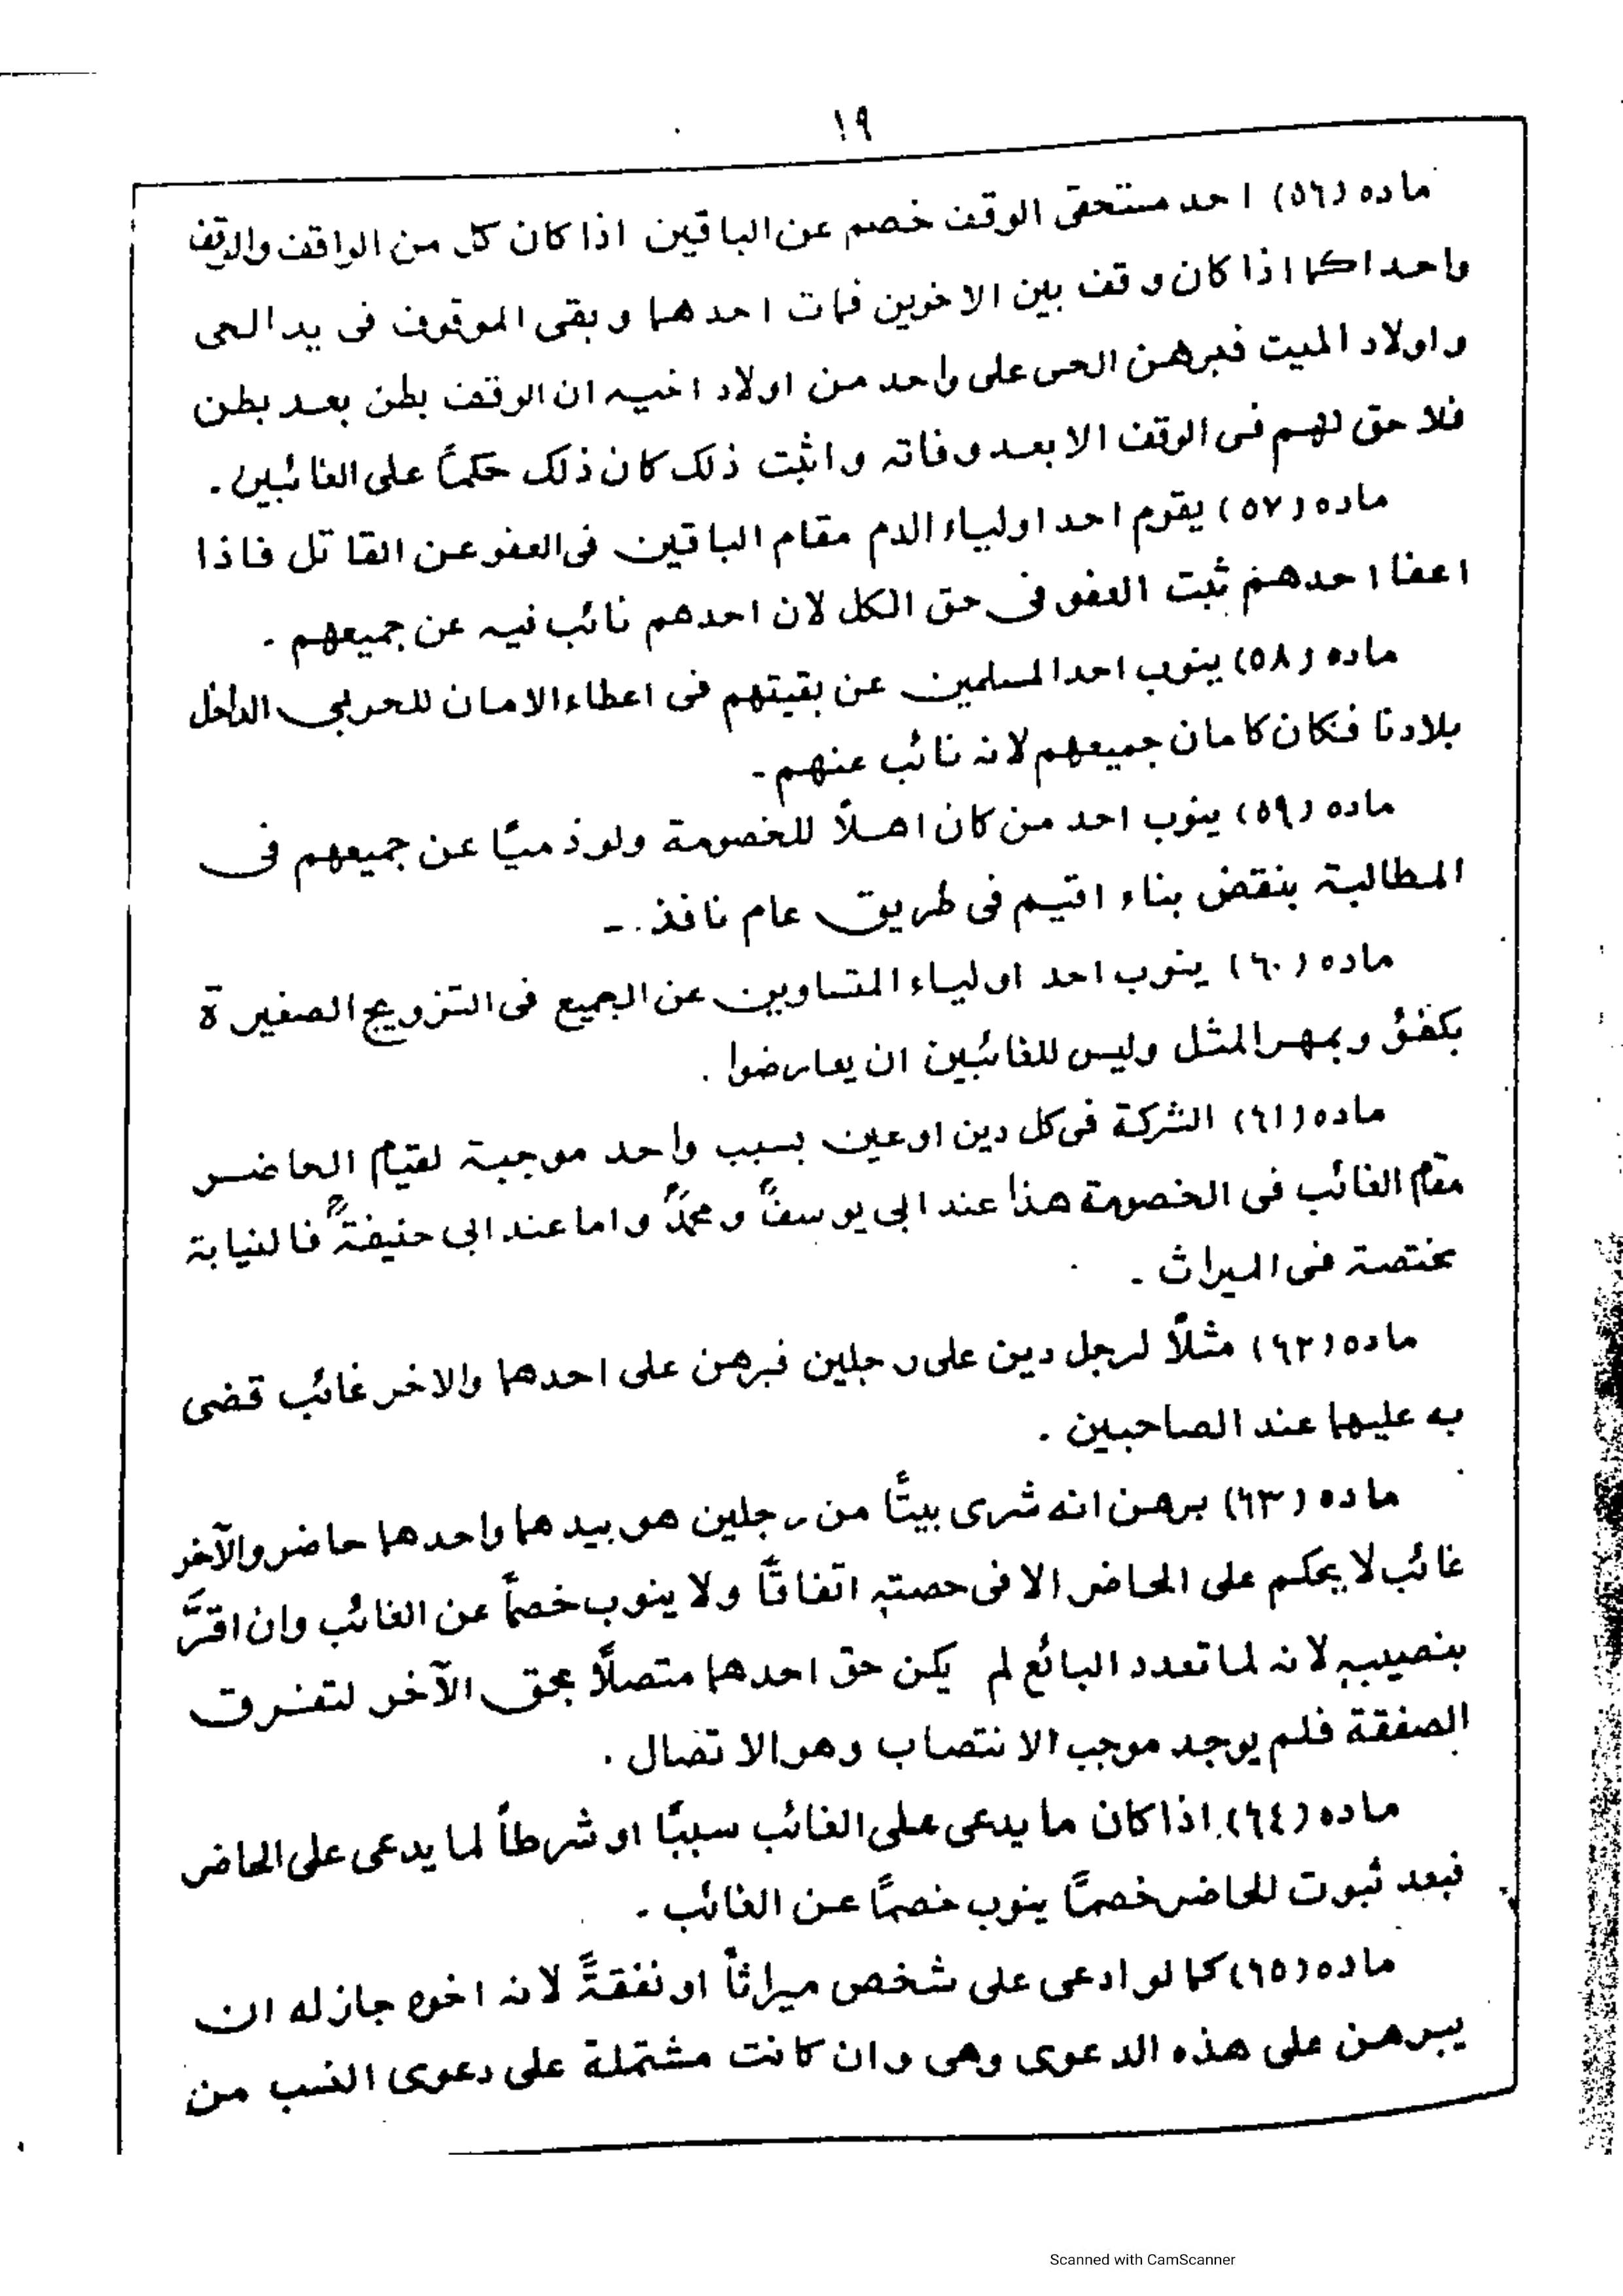 ١٩
ماده (٥٦) احد مستحقى الوقف خصم عن الباقين اذا كان كل من الواقف والوقف
واحدا كما اذا كان وقف بين الاخوين فمات احدهما وبقى الموقوف فى يد الحى
واولاد الميت فبرهن الحى على واحد من اولاد اخيه ان الوقف بطن بعد بطن
فلا حق لهم فى الوقف الا بعد وفاته واثبت ذلك كان ذلك حكمًا على الغائبين .
ماده (٥٧) يقوم احد اولياء الدم مقام الباقين فى العفو عن القاتل فاذا
اعفا احدهم ثبت العفو فى حق الكل لان احدهم نائب فيه عن جميعهم -
ماده (٥٨) ينوب احد المسلمين عن بقيتهم فى اعطاء الامان للحربى الداخل
بلادنا فكان كامان جميعهم لانه نائب عنهم -
ماده (٥٩) ينوب احد من كان اهلاً للخصومة ولو ذميًا عن جميعهم فى
المطالبة بنقض بناء اقيم فى طريق عام نافذ . -
ماده (٦٠) ينوب احد اولياء المتساوين عن الجميع فى التزويج الصغيرة
بكفؤ وبمهر المثل وليس للغائبين ان يعارضوا .
ماده (٦١) الشركة فى كل دين او عين بسبب واحد موجبة لقيام الحاضر
مقام الغائب فى الخصومة هذا عند ابى يوسفؒ ومحمدؒ واما عند ابى حنيفةؒ فالنيابة
مختصة فى الميراث -
ماده (٦٢) مثلاً لرجل دين على رجلين فبرهن على احدهما والاخر غائب قضى
به عليهما عند الصاحبين .
ماده (٦٣) برهن انه شرى بيتًا من رجلين هو بيدهما واحدهما حاضر والآخر
غائب لا يحكم على الحاضر الا فى حصته اتفاقًا ولا ينوب خصمًا عن الغائب وان اقرَّ
بنصيبه لانه لما تعدد البائع لم يكن حق احدهما متصلاً بحق الآخر لتفرق
الصفقة فلم يوجد موجب الانتصاب وهو الاتصال .
ماده (٦٤) اذا كان ما يدعى على الغائب سببًا او شرطاً لما يدعى على الحاضر
فبعد ثبوت للحاضر خصمًا ينوب خصمًا عن الغائب -
ماده (٦٥) كما لو ادعى على شخص ميراثًا او نفقةً لانه اخوه جاز له ان
يبرهن على هذه الدعوى وهى وان كانت مشتملة على دعوى النسب من
Scanned with CamScanner